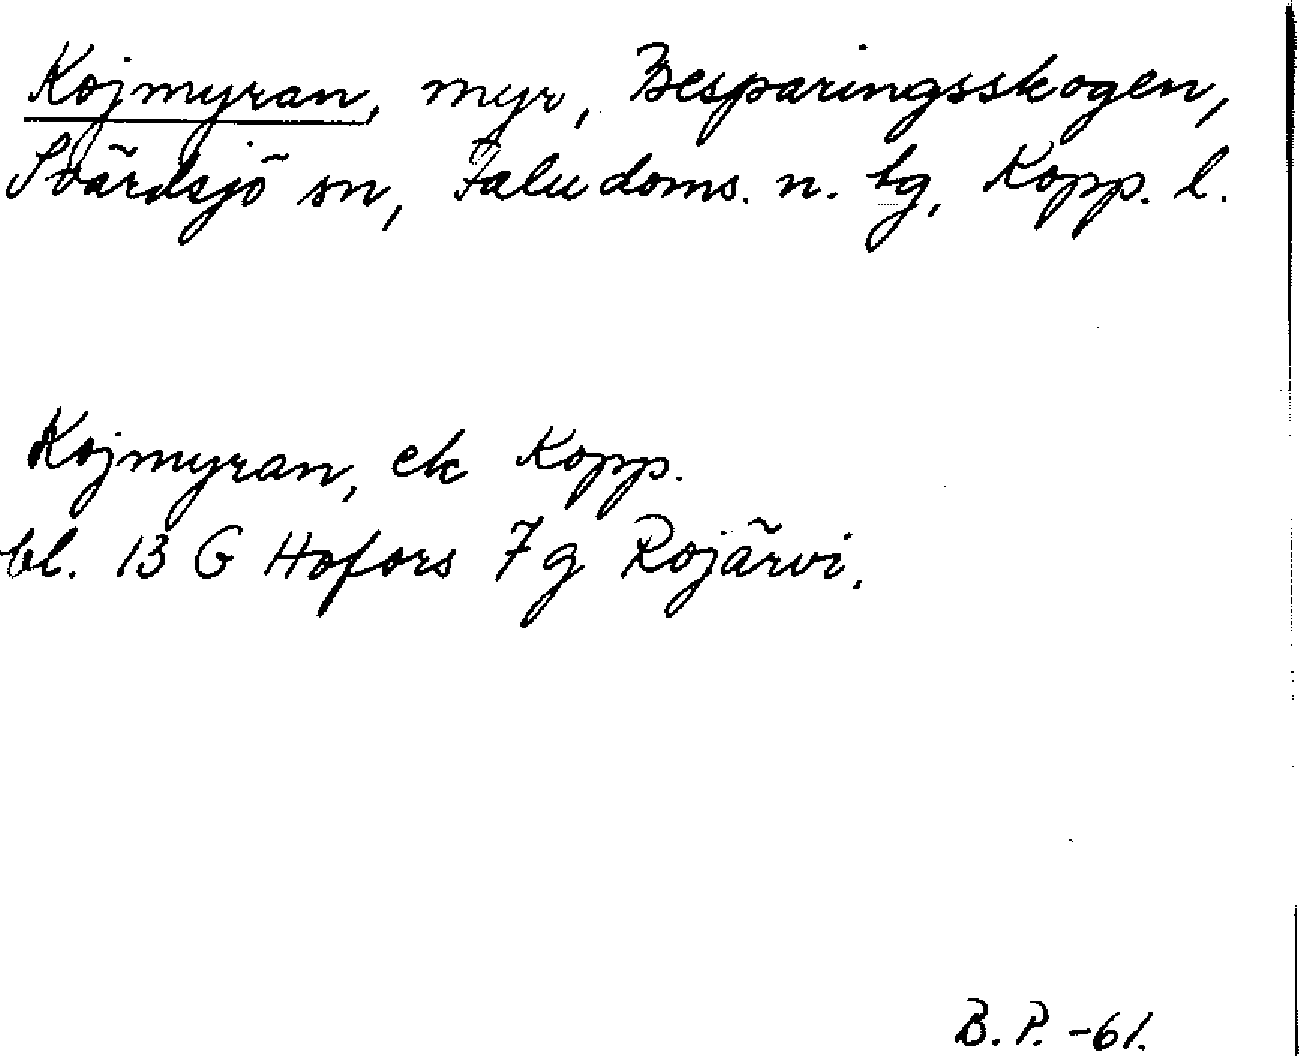 Kojmyran, myr, Besparingsskogen,
Svärdsjö sn, Falu doms. n. tg, Kopp. l.
Kojmyran, ek Kopp.
bl. 13 G Hofors 7 g Rojärvi.
B. P. -61.